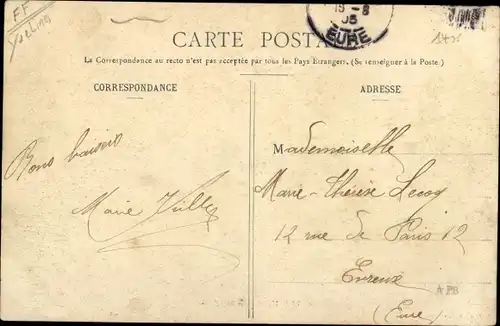 FF
19 - 8
05
EURE
CARTE POSTALE
La Correspondance au recto n'est pas acceptée par tous les Pays Etrangers. (Se renseigner à la Poste.)
CORRESPONDANCE
ADRESSE
Bons baisers
Marie
Mademoiselle
Marie-Thérèse Lecoq
12 rue de Paris 12
Evreux
(Eure)